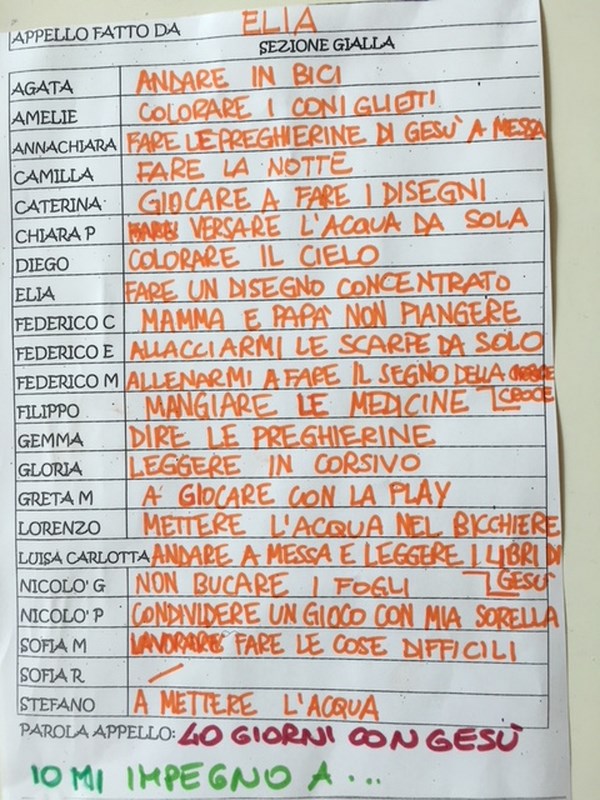 APPELLO FATTO DA ELIA
SEZIONE GIALLA
AGATA ANDARE IN BICI
AMELIE COLORARE I CONIGLIETTI
ANNACHIARA FARE LE PREGHIERINE DI GESÙ A MESSA
CAMILLA FARE LA NOTTE
CATERINA GIOCARE A FARE I DISEGNI
CHIARA P VERSARE L'ACQUA DA SOLA
DIEGO COLORARE IL CIELO
ELIA FARE UN DISEGNO CONCENTRATO
FEDERICO C MAMMA E PAPA' NON PIANGERE
FEDERICO E ALLACCIARMI LE SCARPE DA SOLO
FEDERICO M ALLENARMI A FARE IL SEGNO DELLA CROCE
FILIPPO MANGIARE LE MEDICINE
GEMMA DIRE LE PREGHIERINE
GLORIA LEGGERE IN CORSIVO
GRETA M A GIOCARE CON LA PLAY
LORENZO METTERE L'ACQUA NEL BICCHIERE
LUISA CARLOTTA ANDARE A MESSA E LEGGERE I LIBRI DI GESÙ
NICOLO' G NON BUCARE I FOGLI
NICOLO' P CONDIVIDERE UN GIOCO CON MIA SORELLA
SOFIA M LAVORARE FARE LE COSE DIFFICILI
SOFIA R /
STEFANO A METTERE L'ACQUA
PAROLA APPELLO: 40 GIORNI CON GESÙ
IO MI IMPEGNO A...